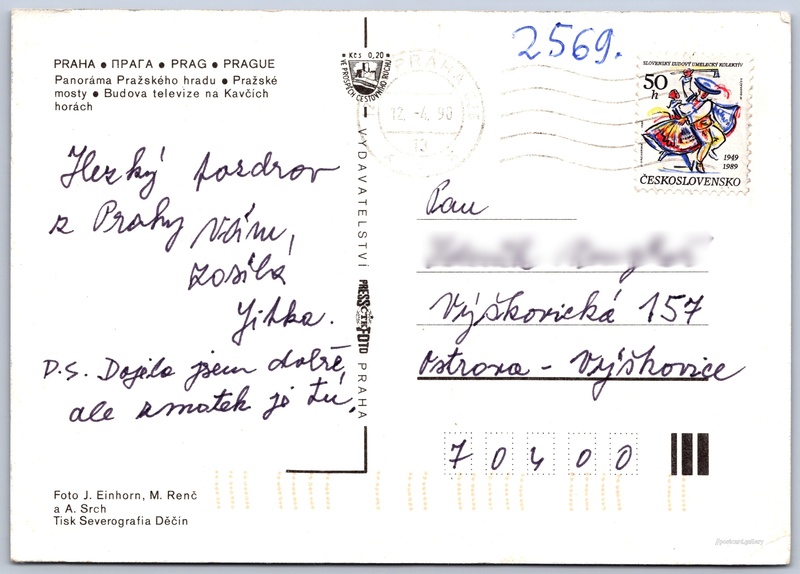 2569.
PRAHA ● ПРАГА ● PRAG ● PRAGUE
Panoráma Pražského hradu ● Pražské
mosty ● Budova televize na Kavčích
horách
Kčs 0,20
VE PROSPĚCH CESTOVNÍHO RUCHU
PRAHA
12.-4.90
SLOVENSKÝ ĽUDOVÝ UMELECKÝ KOLEKTÍV
50
h
1949
1989
ČESKOSLOVENSKO
Hezký pozdrav
z Prahy Vám,
posílá
Jitka.
P.S. Dojela jsem dobře,
ale zmatek je tu.
VYDAVATELSTVÍ PRESSFOTO PRAHA
ČTK
Pan
Výškovická 157
Ostrava - Výškovice
70400
Foto J. Einhorn, M. Renč
a A. Srch
Tisk Severografia Děčín
@postcard.gallery